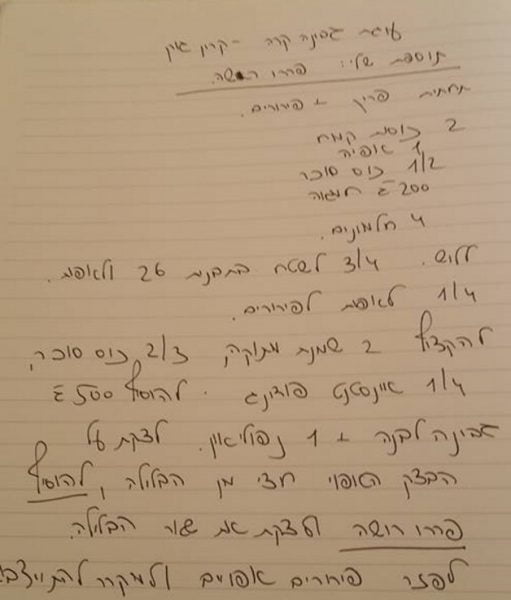 עוגת גבינה קרה - קרין גורן
תוספת שלי: פררו רושה.
תחתית פריך + פירורים.
2 כוסות קמח
1 אפיה
1/2 כוס סוכר
200 ג חמאה
4 חלמונים.
ללוש. 3/4 לשטח בתבנית 26 ולאפות.
1/4 לאפות לפירורים.
להקציף 2 שמנת מתוקה, 2/3 כוס סוכר,
1/4 אינסטנט פודינג. להוסיף 500 ג
גבינה לבנה + 1 נפוליאון. לצקת על
הבצק האפוי חצי מן הבלילה, להוסיף
פררו רושה ולצקת את שאר הבלילה.
לפזר פירורים אפויים ולמקרר להתייצב!